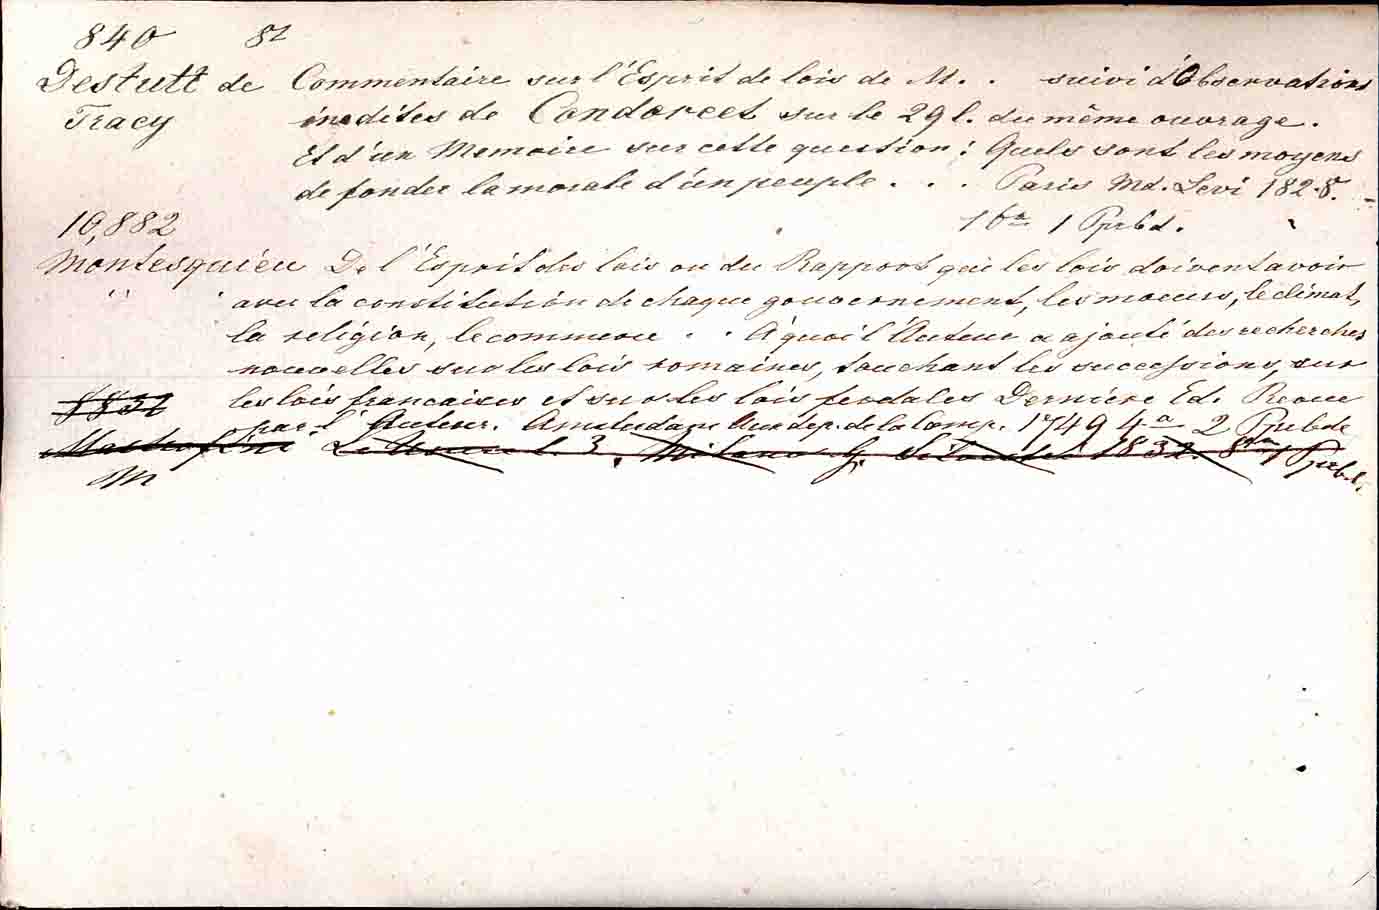 840 82
Destutt de Commentaire sur l'Esprit de lois de M. . suivi d'Observations
Tracy inedites de Condorcet sur le 29 l. du même ouvrage.
Et d'un Memoire sur cette question: Quels sont les moyens
de fonder la morale d'un peuple . . . Paris Md. Levi 1828.
1 Ppebd.
10,882
Montesquieu De l'Esprit des lois ou du Rapport que les lois doivent avoir
avec la constitution de chaque gouvernement, les moeurs, le climat,
la religion, le commerce . . A quoi l'Auteur a ajouté des recherches
nouvelles sur les lois romaines, touchant les successions, sur
8832 les lois francaises et sur les lois feodales Dernière Ed. Revue
par l'Auteur. Amsterdam Aux dep. de la Comp. 1749 4a 2 Ppebde
Mastrofini 3. Milano G. Silvestri 1832. 1 Ppebd.
M